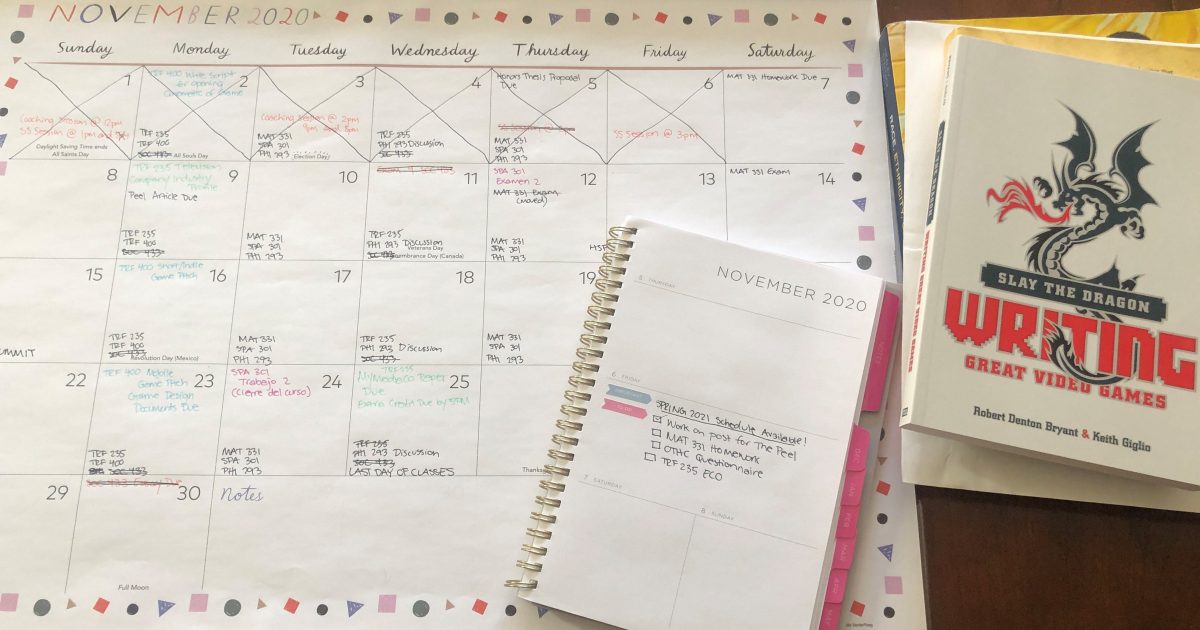 NOVEMBER 2020
Sunday Monday Tuesday Wednesday Thursday Friday Saturday
1
Coaching Session @ 12pm
SS Session @ 1pm and
Daylight Saving Time ends
All Saints Day
2
TEF 400 Write Script
for opening
Cinematic of Game
TEF 235
TEF 400
SOC 433
All Souls Day
3
Coaching Session @ 2pm
MAT 331
SPA 301
PHI 293
(Election Day)
4
TEF 235
PHI 293 Discussion
SOC 433
5
Honors Thesis Proposal
Due
SS Session @
MAT 331
SPA 301
PHI 293
6
SS Session @ 3pm
7
MAT 331 Homework Due
8
9
TEF 235 Television
Company/Industry
Profile
Peel Article Due
TEF 235
TEF 400
SOC 433
10
MAT 331
SPA 301
PHI 293
11
TEF 235
PHI 293 Discussion
Veterans Day
Remembrance Day (Canada)
12
SPA 301
Examen 2
MAT 331 Exam
(moved)
MAT 331
SPA 301
PHI 293
13
14
MAT 331 Exam
15
16
TEF 400 Short/Indie
Game Pitch
TEF 235
TEF 400
SOC 433
Revolution Day (Mexico)
17
MAT 331
SPA 301
PHI 293
18
TEF 235
PHI 293 Discussion
SOC 433
19
MAT 331
SPA 301
PHI 293
22
23
TEF 400 Mobile
Game Pitch
Game Design
Documents Due
TEF 235
TEF 400
SOC 433
24
SPA 301
Trabajo 2
(Cierre del curso)
MAT 331
SPA 301
PHI 293
25
TEF 235
MyMediaCo Paper
Due
Extra Credit Due by 5PM
TEF 235
PHI 293 Discussion
SOC 433
LAST DAY OF CLASSES
29
30
SOC 433 Essay Due
Full Moon
Notes
NOVEMBER 2020
5 THURSDAY
6 FRIDAY
TO DO
SPRING 2021 Schedule Available!
Work on post for The Peel
MAT 331 Homework
OTHC Questionnaire
TEF 235 ECO
7 SATURDAY
8 SUNDAY
DEC
JAN
FEB
MAR
APR
MAY
SLAY THE DRAGON
WRITING
GREAT VIDEO GAMES
Robert Denton Bryant & Keith Giglio